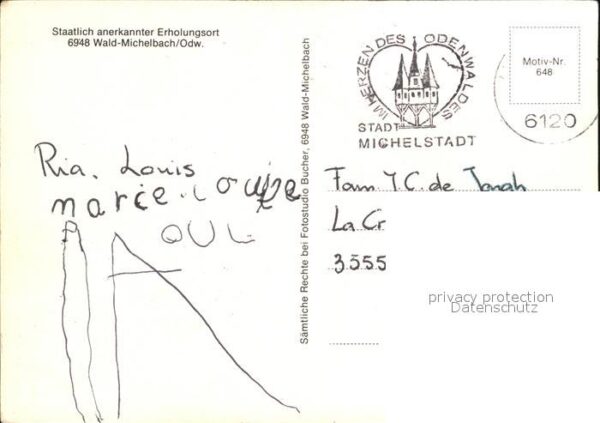 Staatlich anerkannter Erholungsort
6948 Wald-Michelbach/Odw.
Ria. Louis
marie-Louise
PAOUL
Sämtliche Rechte bei Fotostudio Bucher, 6948 Wald-Michelbach
IM HERZEN DES ODENWALDES
STADT
MICHELSTADT
Motiv-Nr.
648
6120
Fam. J.C. de Jonah
La Cr
3555
privacy protection
Datenschutz